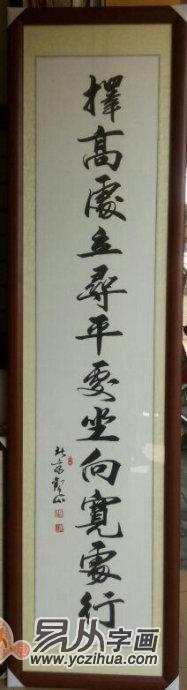 擇高處立尋平處坐向寬處行
北京
易从字画
www.yczihua.com